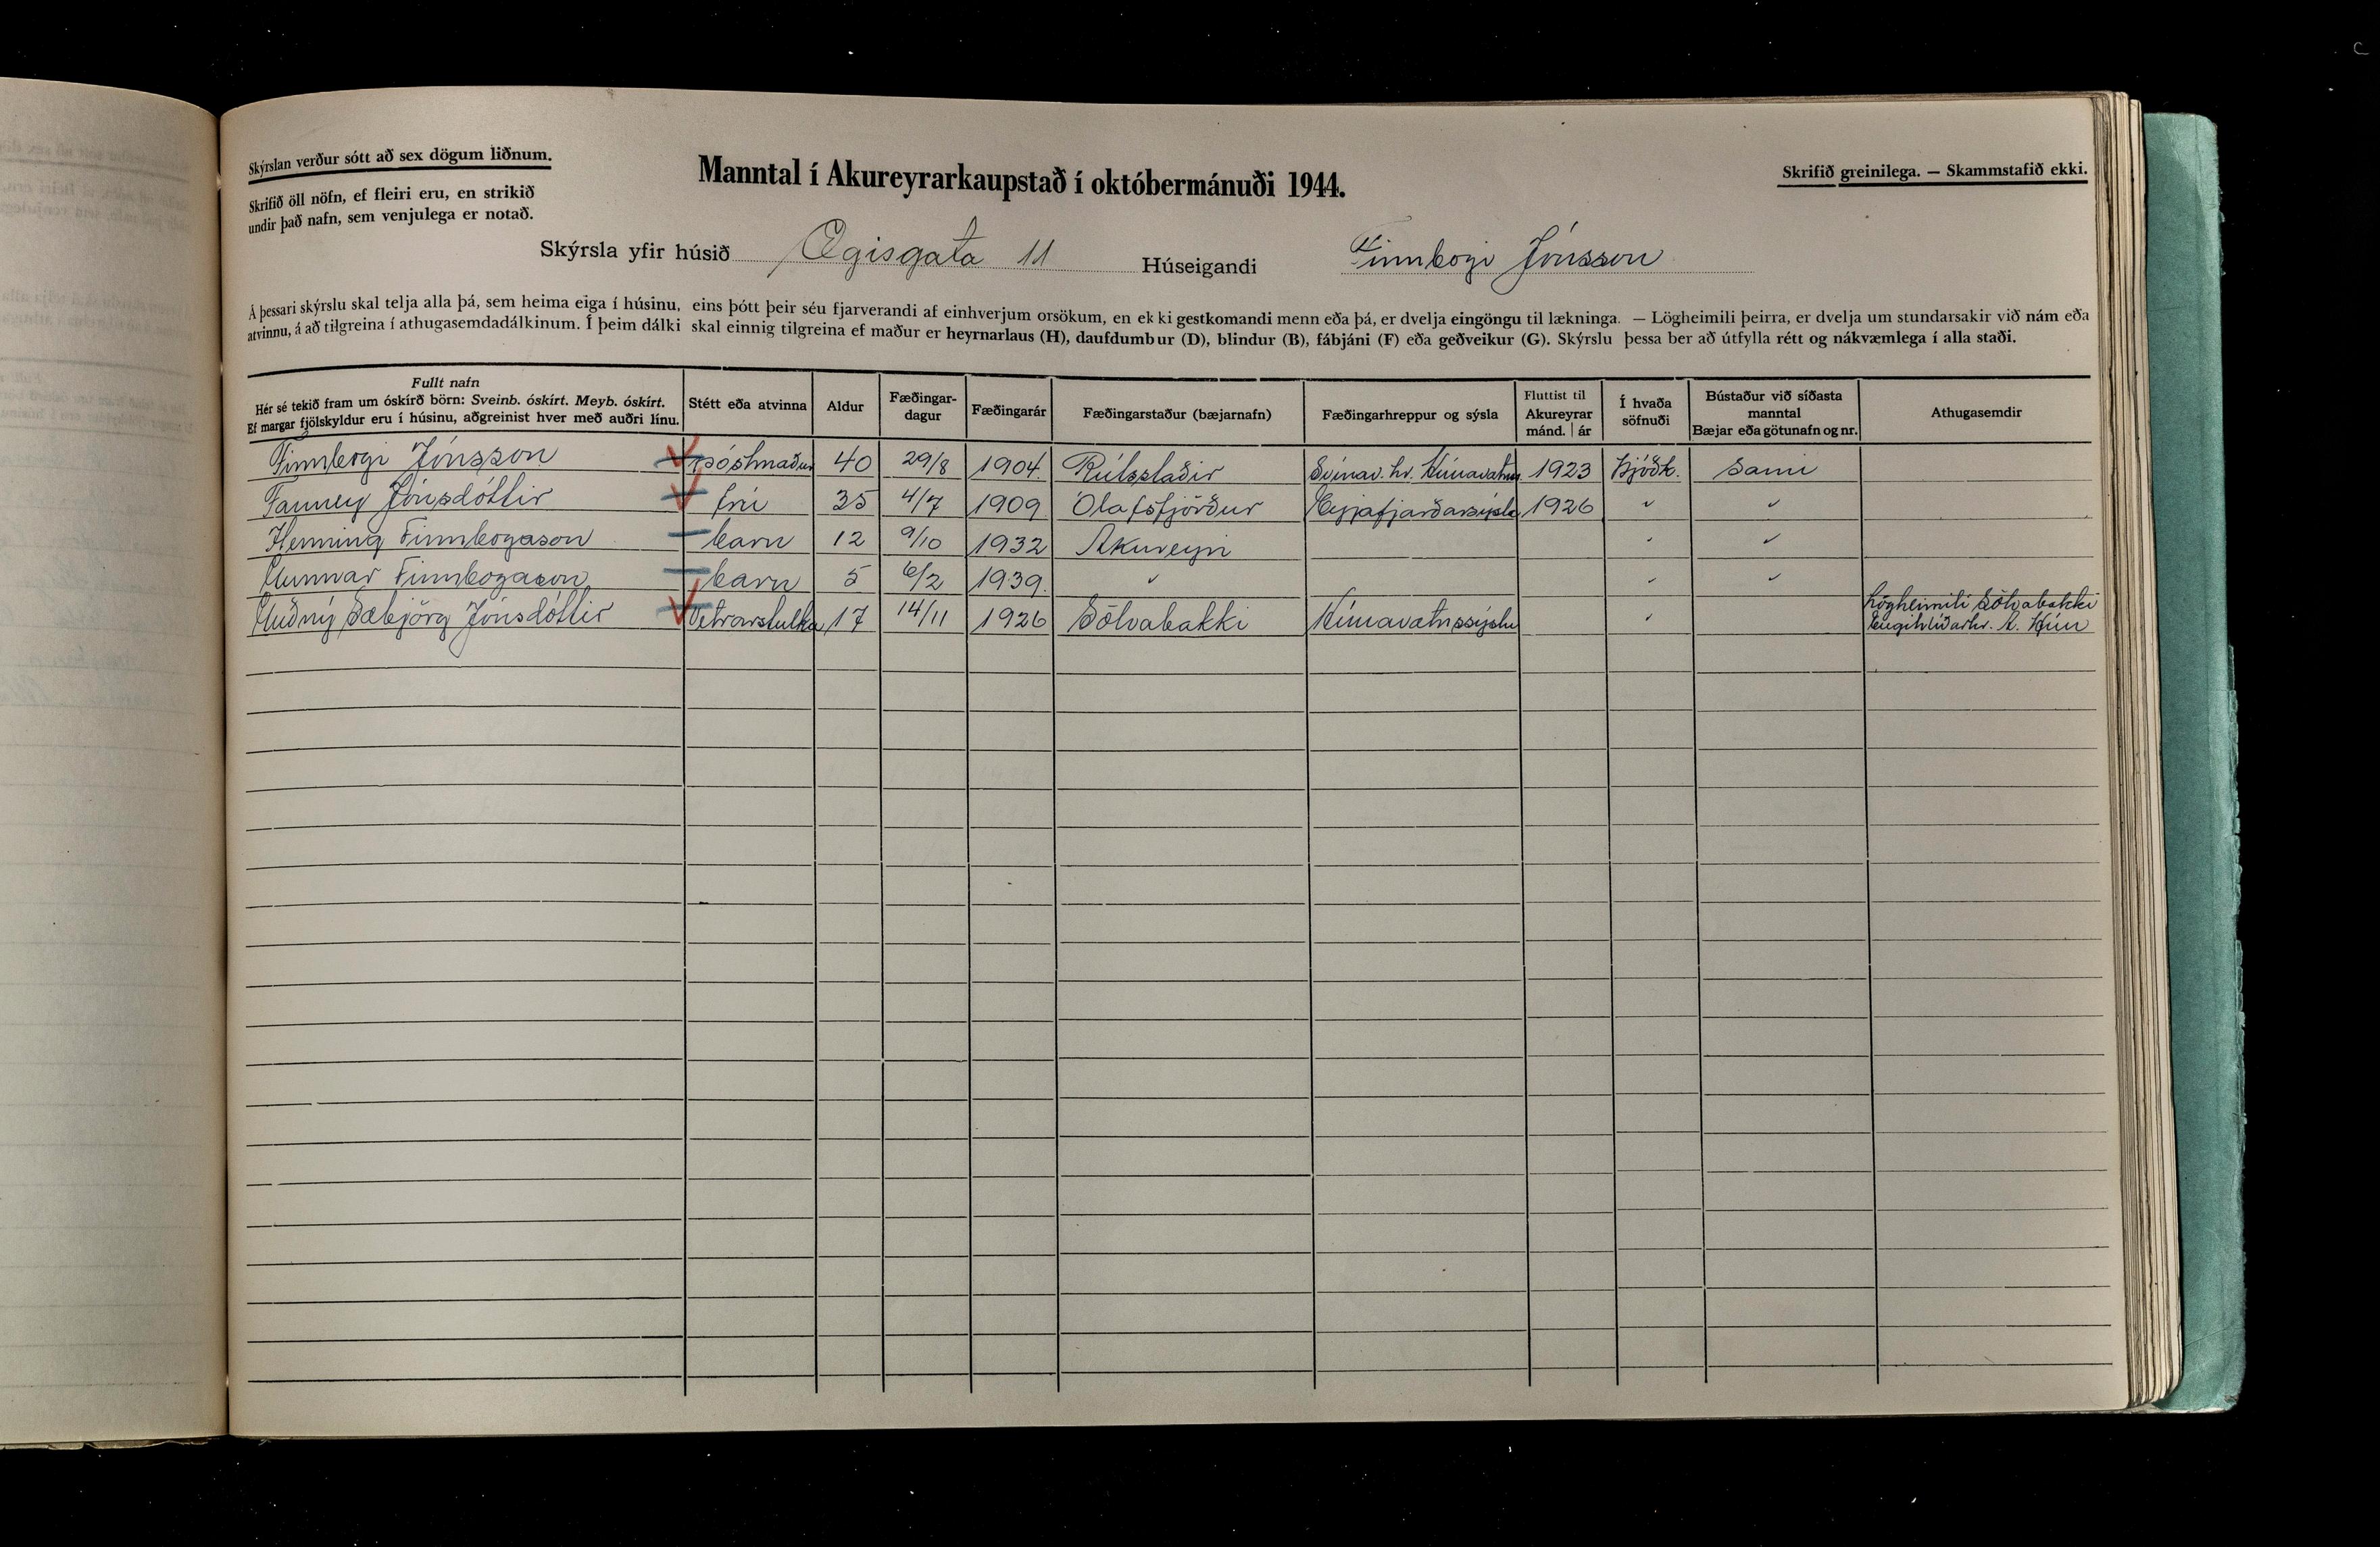 Skýrslan verður sótt að sex dögum liðnum.
Skrifið öll nöfn, ef fleiri eru, en strikið
undir það nafn, sem venjulega er notað.
Manntal í Akureyrarkaupstað í októbermánuði 1944.
Skrifið greinilega. — Skammstafið ekki.
Skýrsla yfir húsið Ægisgata 11 Húseigandi Finnbogi Jónsson
Á þessari skýrslu skal telja alla þá, sem heima eiga í húsinu, eins þótt þeir séu fjarverandi af einhverjum orsökum, en ekki gestkomandi menn eða þá, er dvelja eingöngu til lækninga. — Lögheimili þeirra, er dvelja um stundarsakir við nám eða
atvinnu, á að tilgreina í athugasemdadálkinum. Í þeim dálki skal einnig tilgreina ef maður er heyrnarlaus (H), daufdumbur (D), blindur (B), fábjáni (F) eða geðveikur (G). Skýrslu þessa ber að útfylla rétt og nákvæmlega í alla staði.
Fullt nafn
Hér sé tekið fram um óskírð börn: Sveinb. óskírt. Meyb. óskírt.
Ef margar fjölskyldur eru í húsinu, aðgreinist hver með auðri línu.
Stétt eða atvinna
Aldur
Fæðingar-
dagur
Fæðingarár
Fæðingarstaður (bæjarnafn)
Fæðingarhreppur og sýsla
Fluttist til
Akureyrar
mánd. | ár
Í hvaða
söfnuði
Bústaður við síðasta
manntal
Bæjar eða götunafn og nr.
Athugasemdir
Finnbogi Jónsson póstmaður 40 29/8 1904. Rútsstaðir Svínav. hr. Húnavatns 1923 Þjóðk. Sami
Fanney Jónsdóttir frú 35 4/7 1909 Ólafsfjörður Eyjafjarðarsýsla 1926 〃 〃
Henning Finnbogason barn 12 9/10 1932 Akureyri 〃 〃
Gunnar Finnbogason barn 5 6/2 1939. 〃 〃 〃
Guðný Sæbjörg Jónsdóttir Vetrarstulka 17 14/11 1926 Sölvabakki Húnavatnssýslu 〃 Lögheimili Sölvabakki
Engihlíðarhr. A. Hún